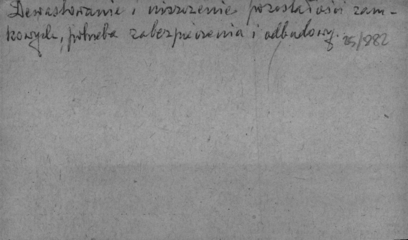 Dewastowanie i niszczenie pozostałości zam-
kowych, potrzeba zabezpieczenia i odbudowy.